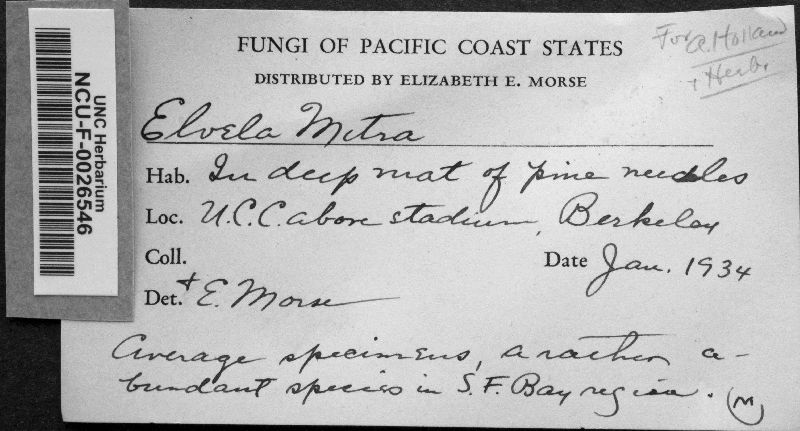 FUNGI OF PACIFIC COAST STATES
For A. Holland
+ Herb.
DISTRIBUTED BY ELIZABETH E. MORSE
Elvela Mitra
Hab. In deep mat of pine needles
Loc. U.C.C. above stadium, Berkeley
Coll.
Date Jan. 1934
+
Det. E. Morse
Average specimens, a rather a-
bundant species in S.F. Bay region. (M)
UNC Herbarium
NCU-F-0026546